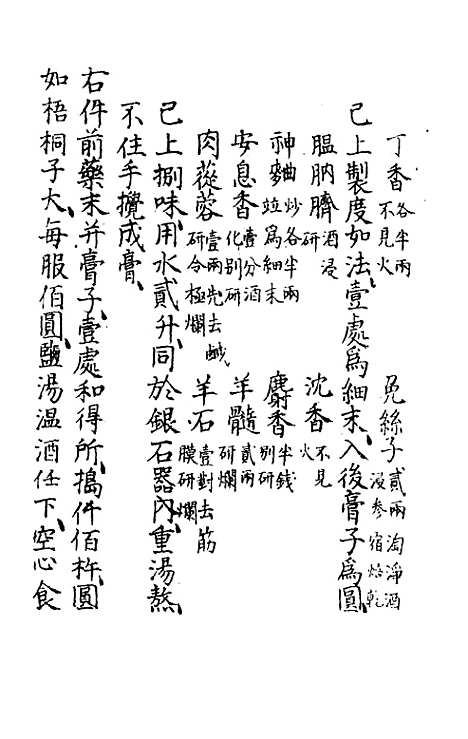 丁香各半兩不見火　免絲子貳兩淘淨酒浸参宿焙乾
已上製度如法、壹處爲細末、入後膏子爲圓、
膃肭臍酒浸研　沈香不見火
神麯炒各半兩竝爲細末　麝香半錢別研
安息香壹分酒化別研　羊髓貳兩研爛
肉蓯蓉壹兩洗去鹹研令極爛　羊石壹對去筋膜研爛
已上捌味、用水貳升、同於銀石器內、重湯熬、
不住手攪成膏、
右件前藥末并膏子、壹處和得所、搗仟佰杵、圓
如梧桐子大、每服佰圓、鹽湯温酒任下、空心食